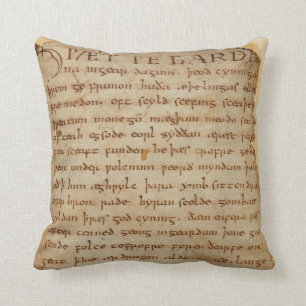 HǷÆT ǷE GARDE
na ingear dagum. þeod cyninga
þrym ge frunon huða æþelingas elle
fremedon. oft scyld scefing sceaþe
þreatum monegū mægþum meodo setla
of teah egsode eorl syððan ærest ƿea
fea sceaft funden he þæs frofre geba
ƿeox under ƿolcnum ƿeorð myndum þah
oð þ him æghƿylc þara ymb sittendra
ofer hron rade hyran scolde gomban
gyldan þ ƿæs god cyning. ðæm eafera ƿæs
æfter cenned geong ingeardum þone god
sende folce tofrofre fyren ðearfe on
geat þ hie ær drugon aldor ase. lange